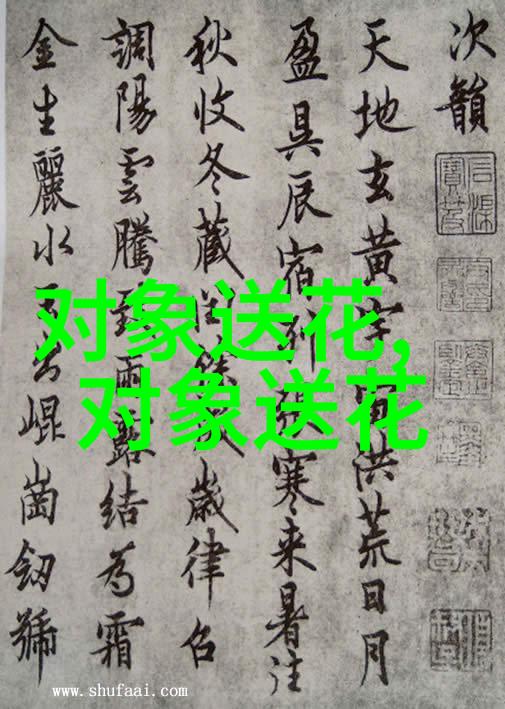 次韻
天地玄黄宇宙洪荒日月
盈昃辰宿列張寒来暑往
秋收冬藏閏餘成歲律召
調陽雲騰致雨露結為霜
金生麗水玉出崐崗劒號
对象送花,
对象送花
www.shufaai.com